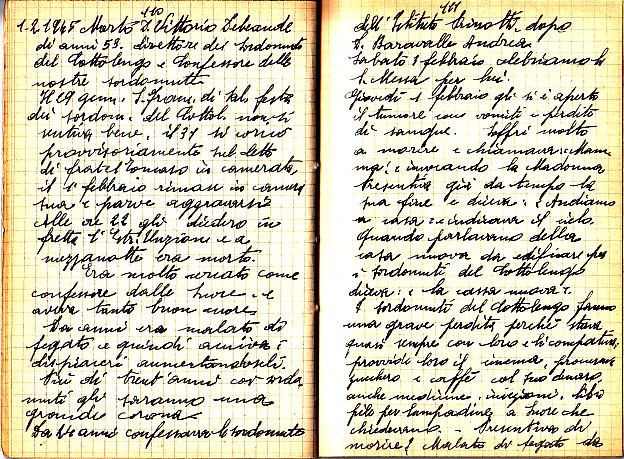 110
1-2-1945 Morto D. Vittorio
di anni 53. direttore dei Sordomuti
del Cottolengo e Confessore delle
nostre sordomute
Il 29 genn. S. Franc. di Sales festa
dei sordom. del Cottol. non si
sentiva bene, il 31 si coricò
provvisoriamente sul letto
di fratel Tomaso in camerata
il 1° febbraio rimase in camera
sua e parve aggravarsi
Alle ore 22 gli diedero in
fretta l'Estr. Unzione e a
mezzanotte era morto.
Era molto come
confessore dalle Suore, e
aveva tanto buon cuore
Da anni era malato di
fegato e quindi
dispiaceri
Più di trent'anni coi sordo
muti gli saranno una
grande corona
Da 20 anni confessava le sordomute
111
dell'Istituto dopo
D. Baravalle Andrea
Sabato 3 febbraio celebriamo la
S. Messa per lui.
Giovedì 1 febbraio gli si è aperto
il tumore con vomiti e perdita
di sangue. Soffrì molto
a morire e chiamava: Mam
ma! e invocando la Madonna
Presentiva già da tempo la
sua fine e diceva: Andiamo
a casa: e indicava il cielo.
Quando parlavano della
casa nuova da edificare per
i sordomuti del Cottolengo
diceva: e la cassa nuova?
I sordomuti del Cottolengo fanno
una grave perdita perché stava
quasi sempre con loro e li compativa,
provvide loro il cinema, procurava
zucchero e caffè col suo denaro,
anche medicine, iniezioni,
file per lampadine a Suore che
chiedevano. - Presentiva di
morire? Malato di fegato da